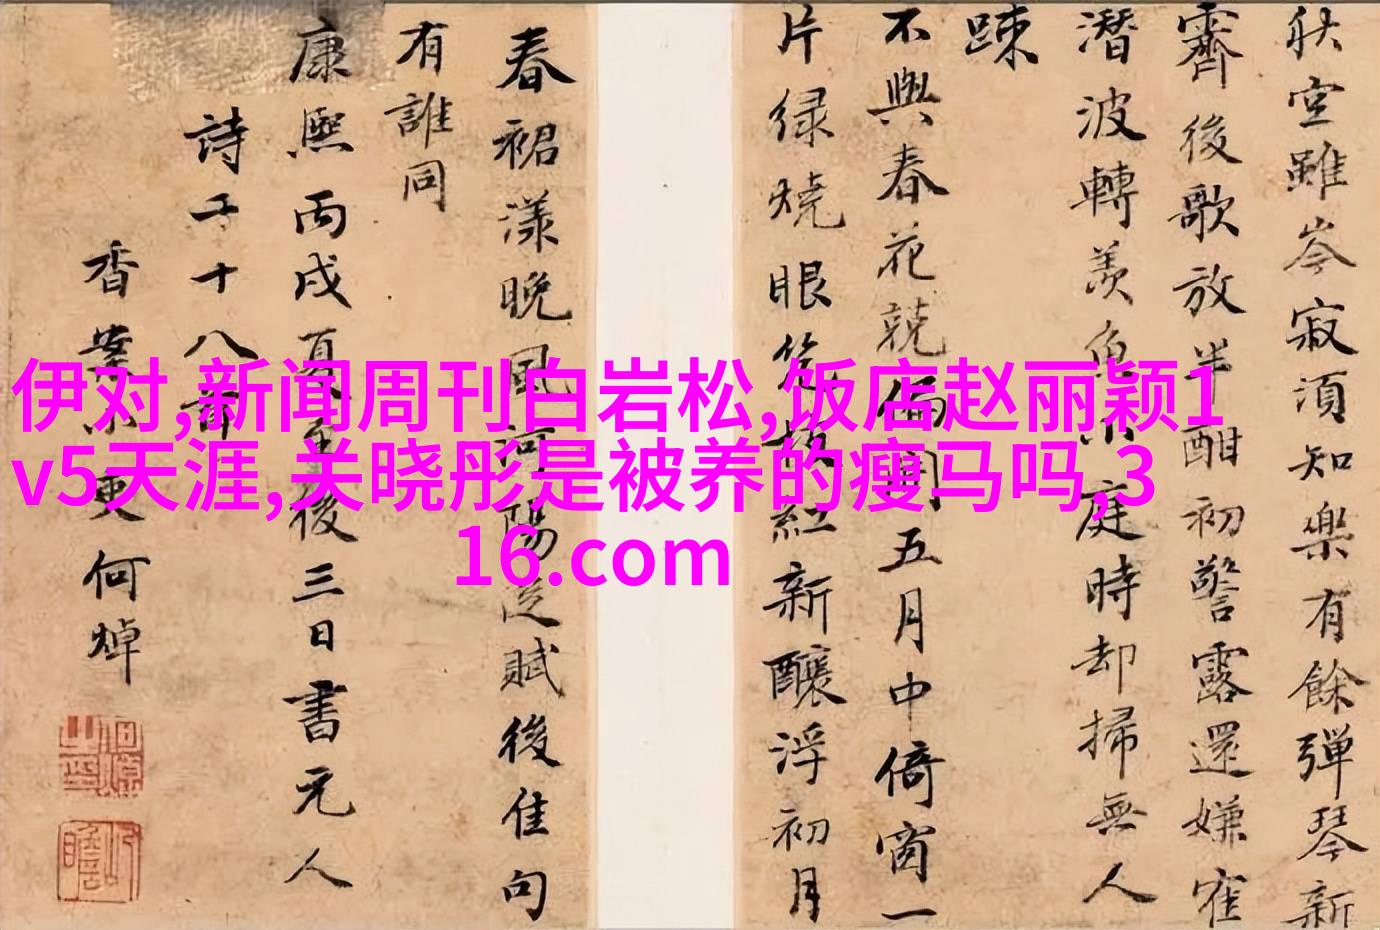 伊对,新闻周刊白岩松,饭店赵丽颖1
v5天涯,关晓彤是被养的瘦马吗,3
16.com
秋空雖岑寂須知樂有餘彈琴新
霽後歌放半酣初警露還嫌雀
潛波轉羨魚庭時却掃無人
踈
不與春花競偏開五月中倚窗一
片緑燒眼幾枝紅新釀浮初月
春裙漾晚風河陽從賦後佳句
有誰同
康熙丙戌夏五後三日書元人
詩二十八首
香案小吏何焯